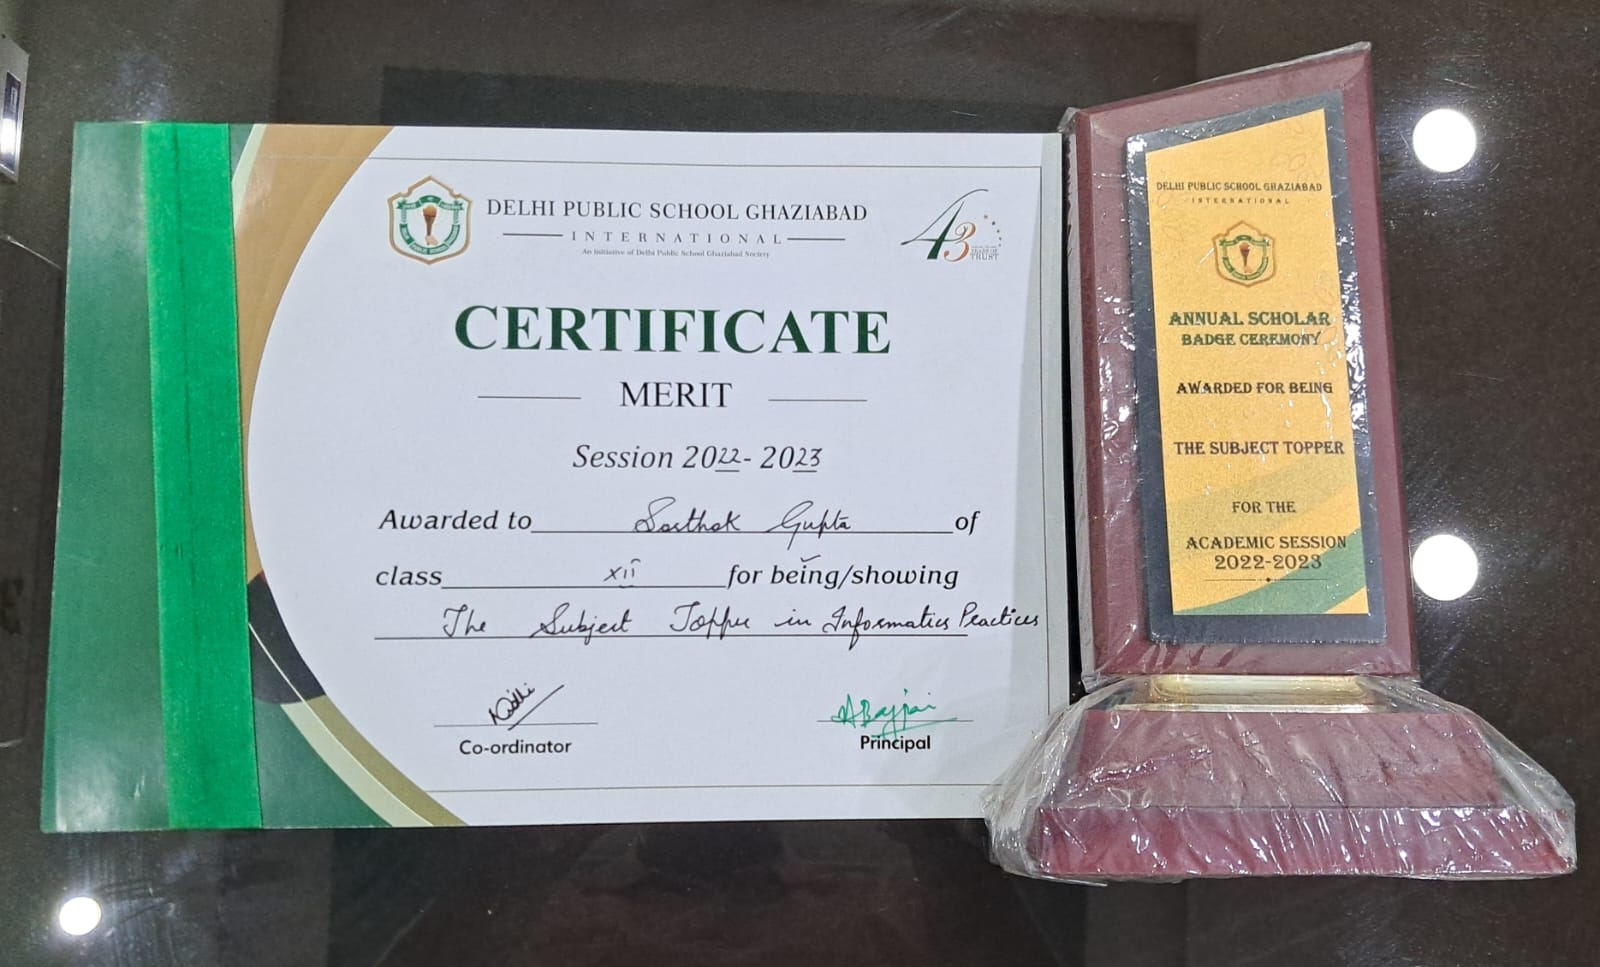 DELHI PUBLIC SCHOOL GHAZIABAD
INTERNATIONAL
An initiative of Delhi Public School Ghaziabad Society
43
YEARS OF
TRUST
CERTIFICATE
MERIT
Session 2022-2023
Awarded to Sarthak Gupta of
class XII for being/showing
The Subject Topper in Informatics Practices
Nidhi
Co-ordinator
ABajpai
Principal
DELHI PUBLIC SCHOOL GHAZIABAD
INTERNATIONAL
ANNUAL SCHOLAR
BADGE CEREMONY
AWARDED FOR BEING
THE SUBJECT TOPPER
FOR THE
ACADEMIC SESSION
2022-2023